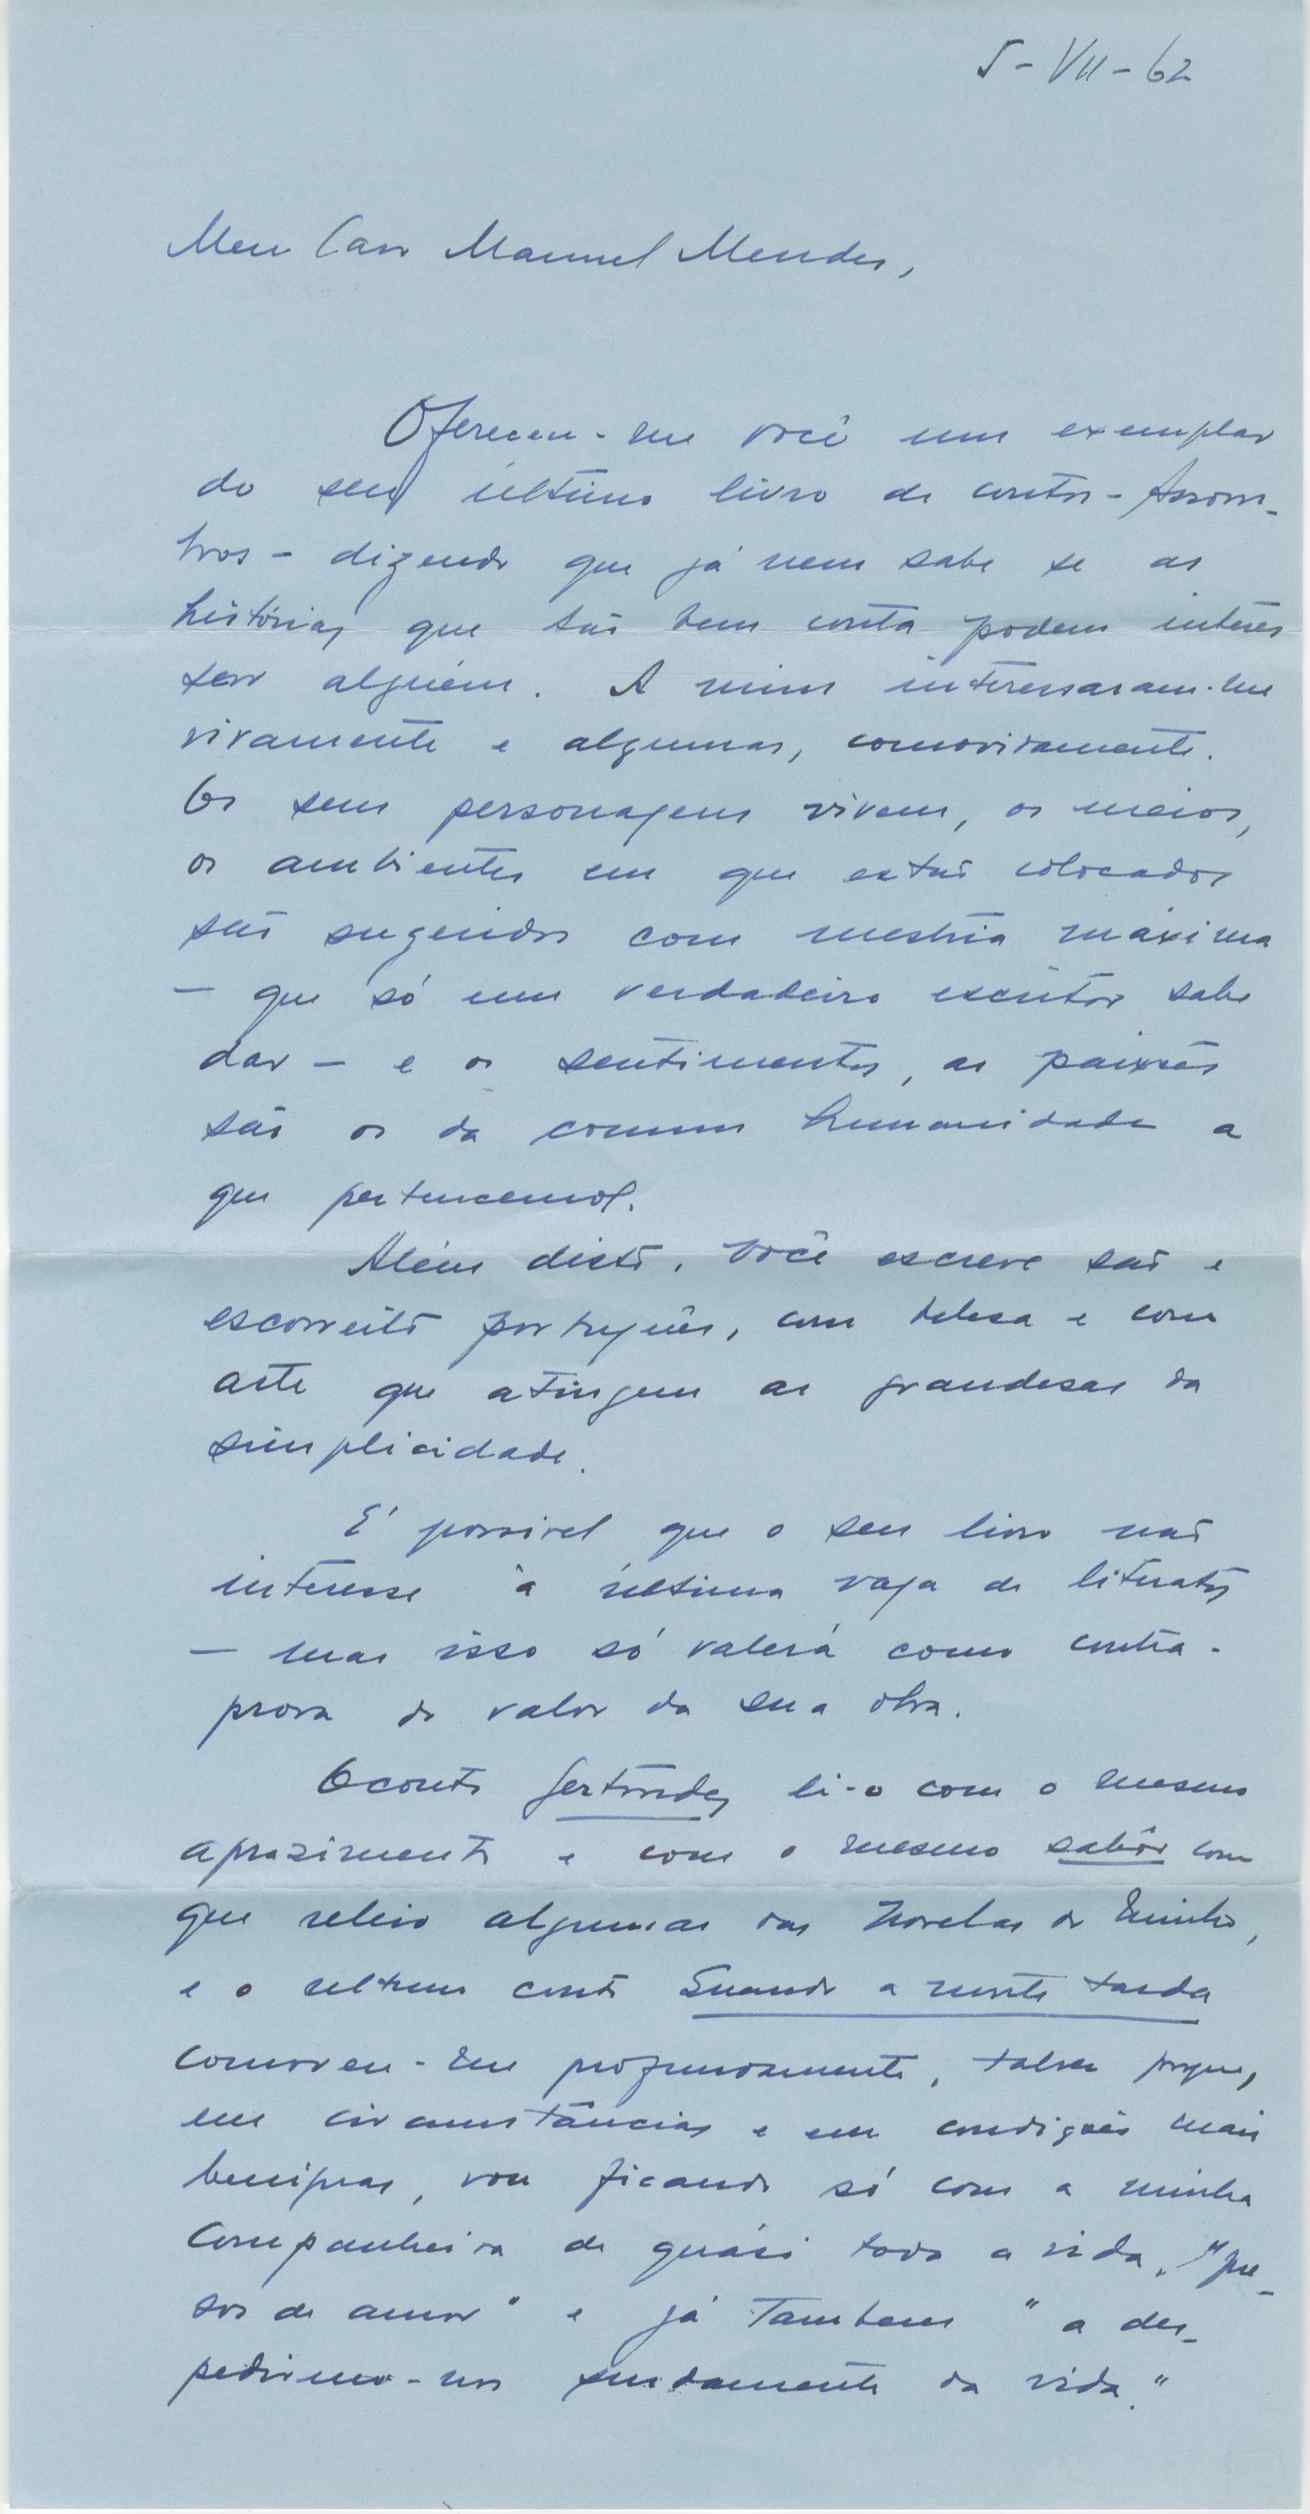 5-VII-62
Meu Caro Manuel Mendes,
Ofereceu-me você um exemplar
do seu último livro de contos - Assom-
bros - dizendo que já nem sabe se as
histórias que tão bem conta podem interes
sar alguém. A mim interessaram-me
vivamente e algumas, comovidamente.
Os seus personagens vivem, os meios,
os ambientes em que estão colocados
são sugeridos com mestria máxima
- que só um verdadeiro escritor sabe
dar - e os sentimentos, as paixões
são os da comum humanidade a
que pertencemos.
Além disto, você escreve são e
escorreito português, com beleza e com
arte que atingem as grandesas da
simplicidade.
É possivel que o seu livro não
interesse à última vaga de literatos
- mas isso só valerá como contra-
prova do valor da sua obra.
O conto Gertrudes li-o com o mesmo
aprazimento e com o mesmo sabôr com
que releio algumas das Novelas do Minho,
e o ultimo conto Quando a morte tarda
comoveu-me profundamente, talvez porque,
em circumstâncias e em condições mais
benignas, vou ficando só com a minha
companheira de quási toda a vida, "pre-
sos de amor" e já tambem "a des-
pedirmo-nos surdamente da vida."